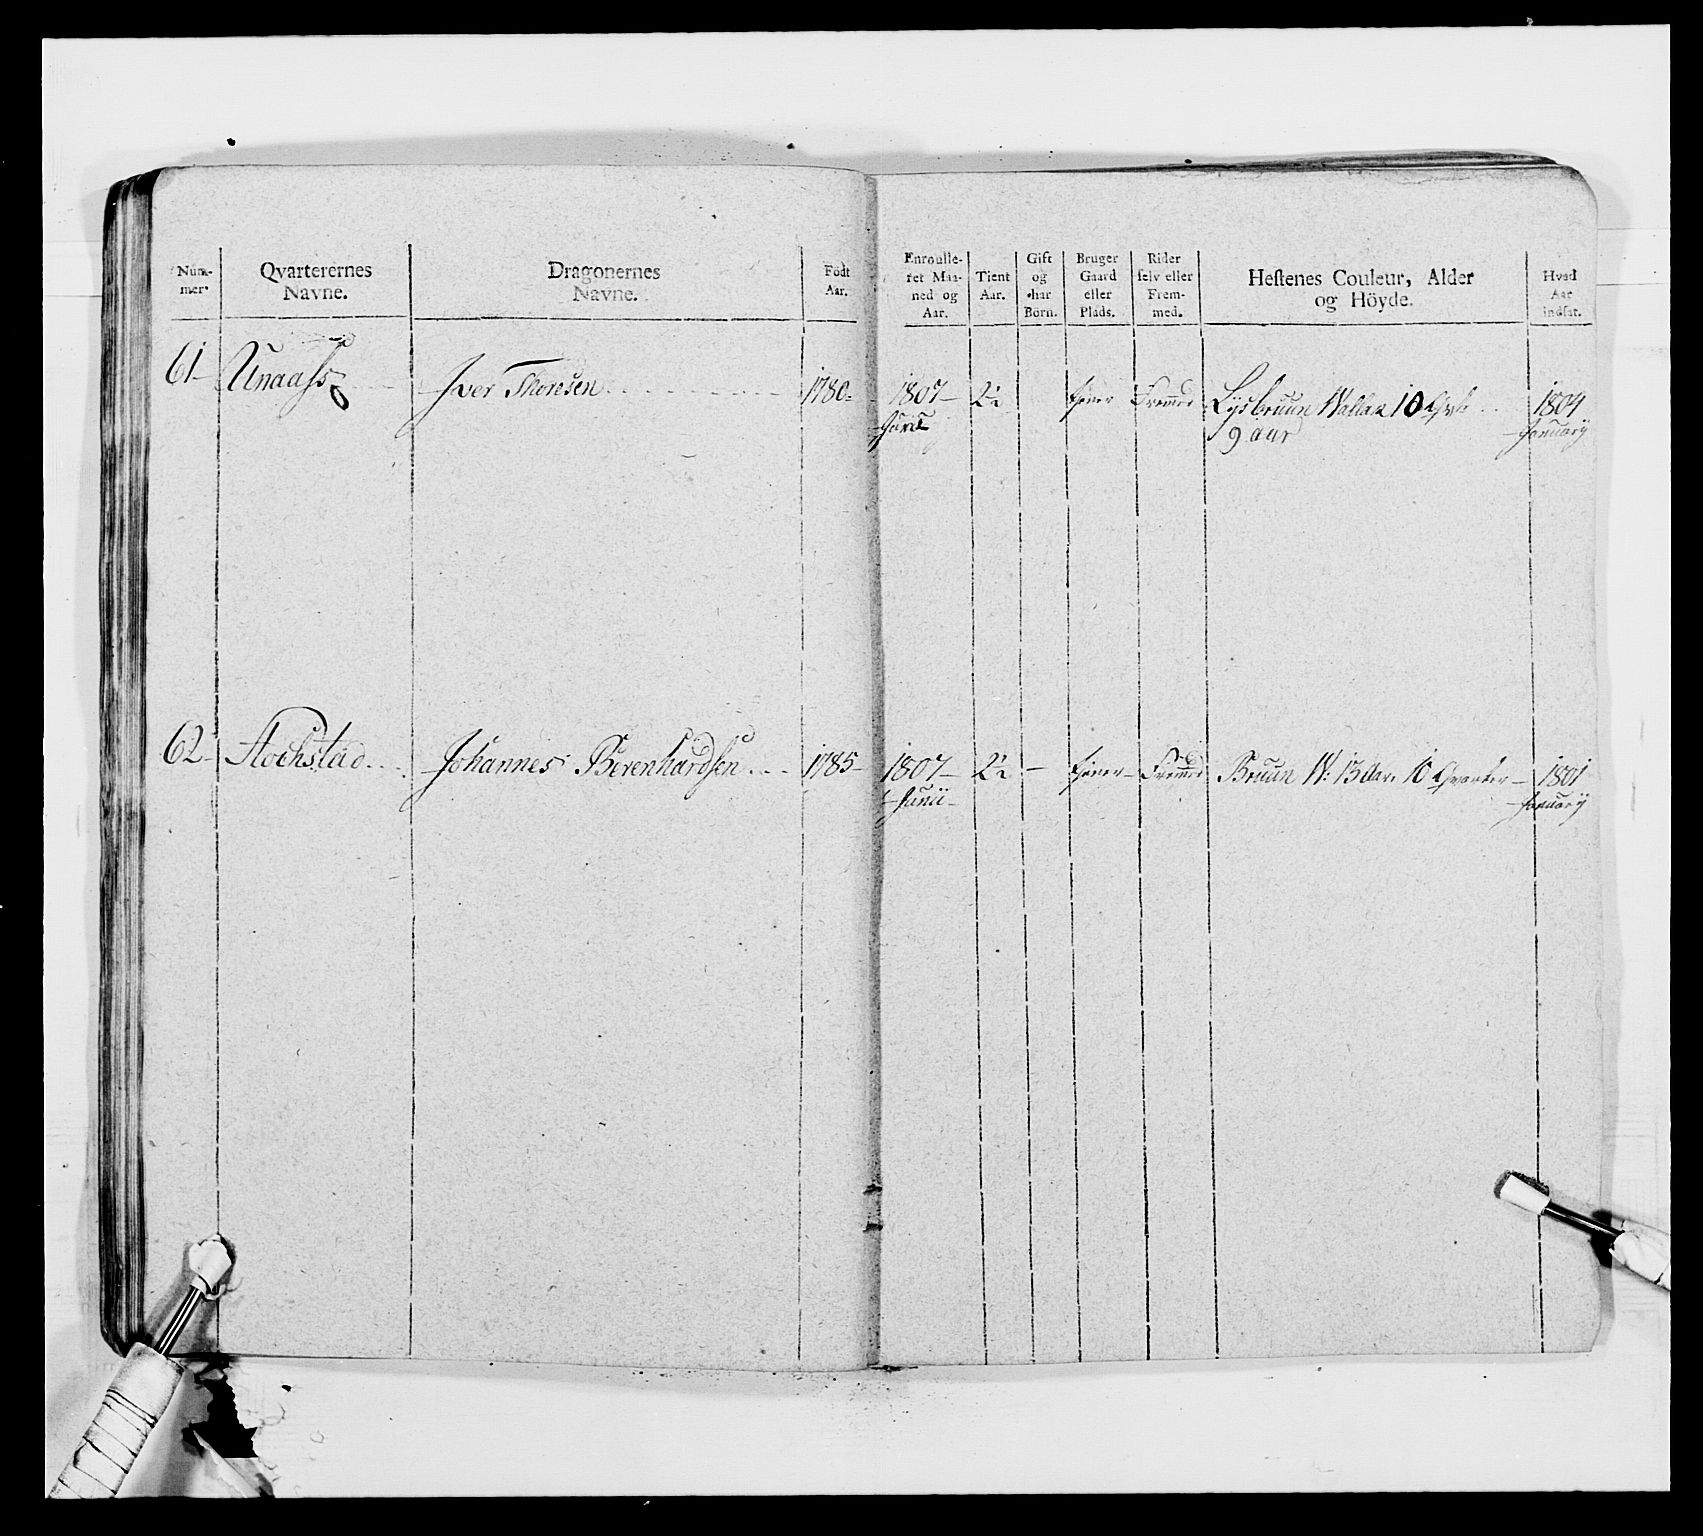 Num-
mer.
Qvarterernes
Navne.
Dragonernes
Navne.
Födt
Aar.
Enroulle-
ret Maa-
ned og
Aar.
Tient
Aar.
Gift
og
har
Börn.
Bruger
Gaard
eller
Plads.
Rider
selv eller
Frem-
med.
Hestenes Couleur, Alder
og Höyde.
Hvad
Aar
indsat.
61 Knaass Iver Thoresen 1780 1807 tjener Fremed Lysbruun Wallak 10 Qvt 1804
9 aar January
62 Stochstad Johannes Berenhardsen 1785 1807 tjener Fremed Bruun W: 13 Aar 10 Qvarter 1801
Junii January